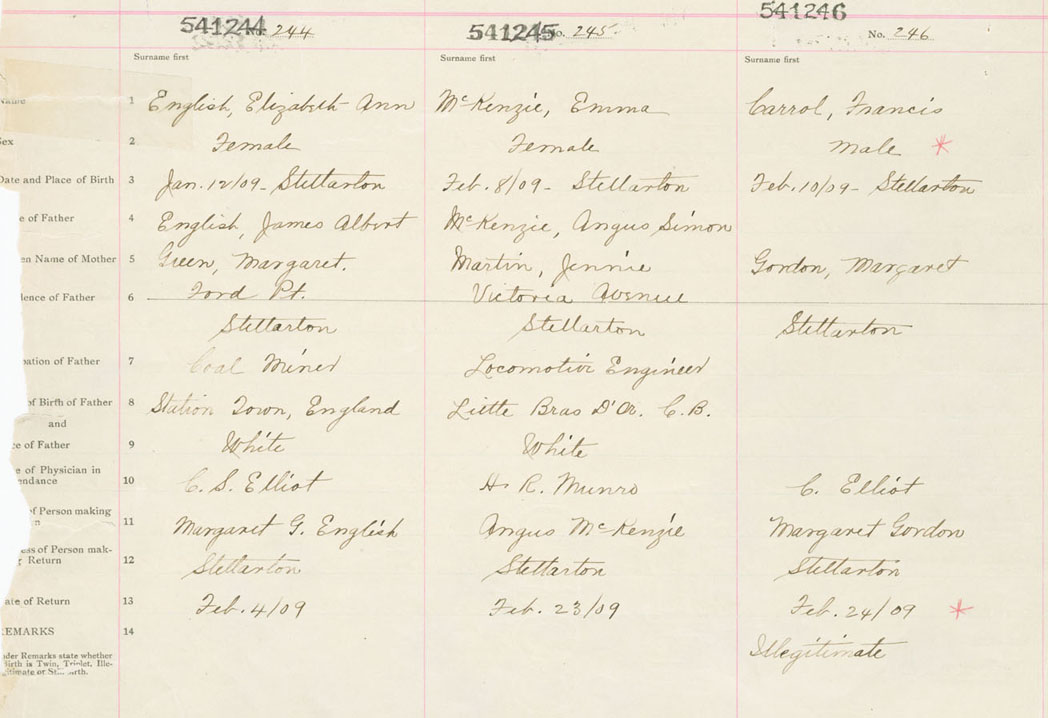 541244 244 541245 No. 245 541246 No. 246
Surname first Surname first Surname first
Name 1 English, Elizabeth Ann McKenzie, Emma Carrol, Francis
Sex 2 Female Female Male *
Date and Place of Birth 3 Jan. 12/09 - Stellarton Feb. 8/09 - Stellarton Feb. 10/09 - Stellarton
e of Father 4 English, James Albert McKenzie, Angus Simon
en Name of Mother 5 Green, Margaret. Martin, Jennie Gordon, Margaret
dence of Father 6 Ford Pt. Victoria Avenue
Stellarton Stellarton Stellarton
pation of Father 7 Coal Miner Locomotive Engineer
of Birth of Father 8 Station Town, England Little Bras D'Or. C.B.
and
ce of Father 9 White White
e of Physician in
endance 10 C. S. Elliot H. R. Munro C. Elliot
of Person making
n 11 Margaret G. English Angus McKenzie Margaret Gordon
ess of Person mak-
g Return 12 Stellarton Stellarton Stellarton
ate of Return 13 Feb. 4/09 Feb. 23/09 Feb. 24/09 *
REMARKS 14
Illegitimate
nder Remarks state whether
Birth is Twin, Triplet, Ille-
gitimate or St... birth.